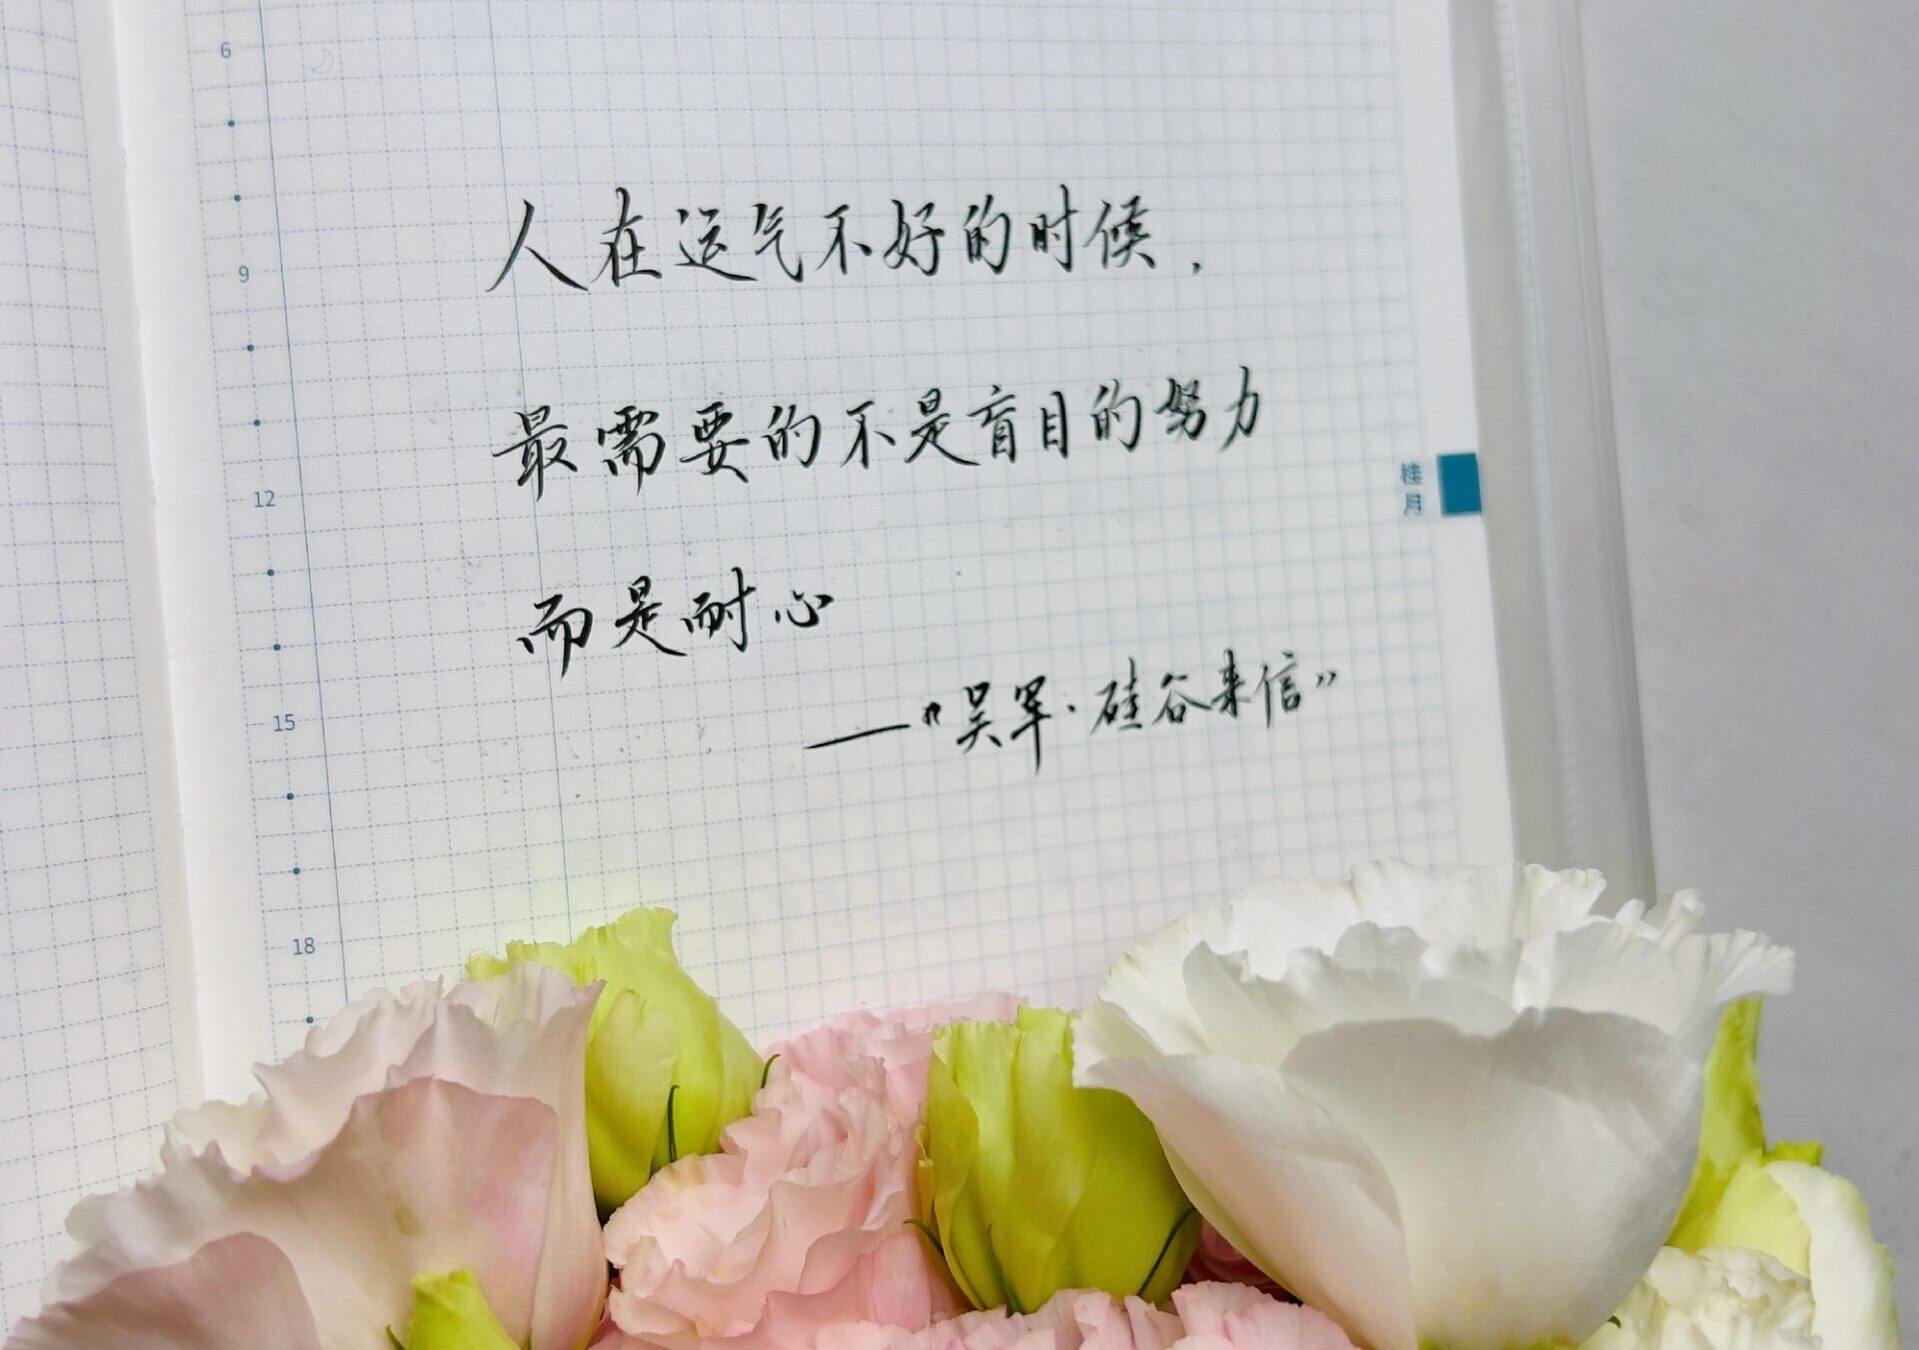 6
人在运气不好的时候，
9
最需要的不是盲目的努力
桂月
12
而是耐心
——“吴军·硅谷来信”
15
18